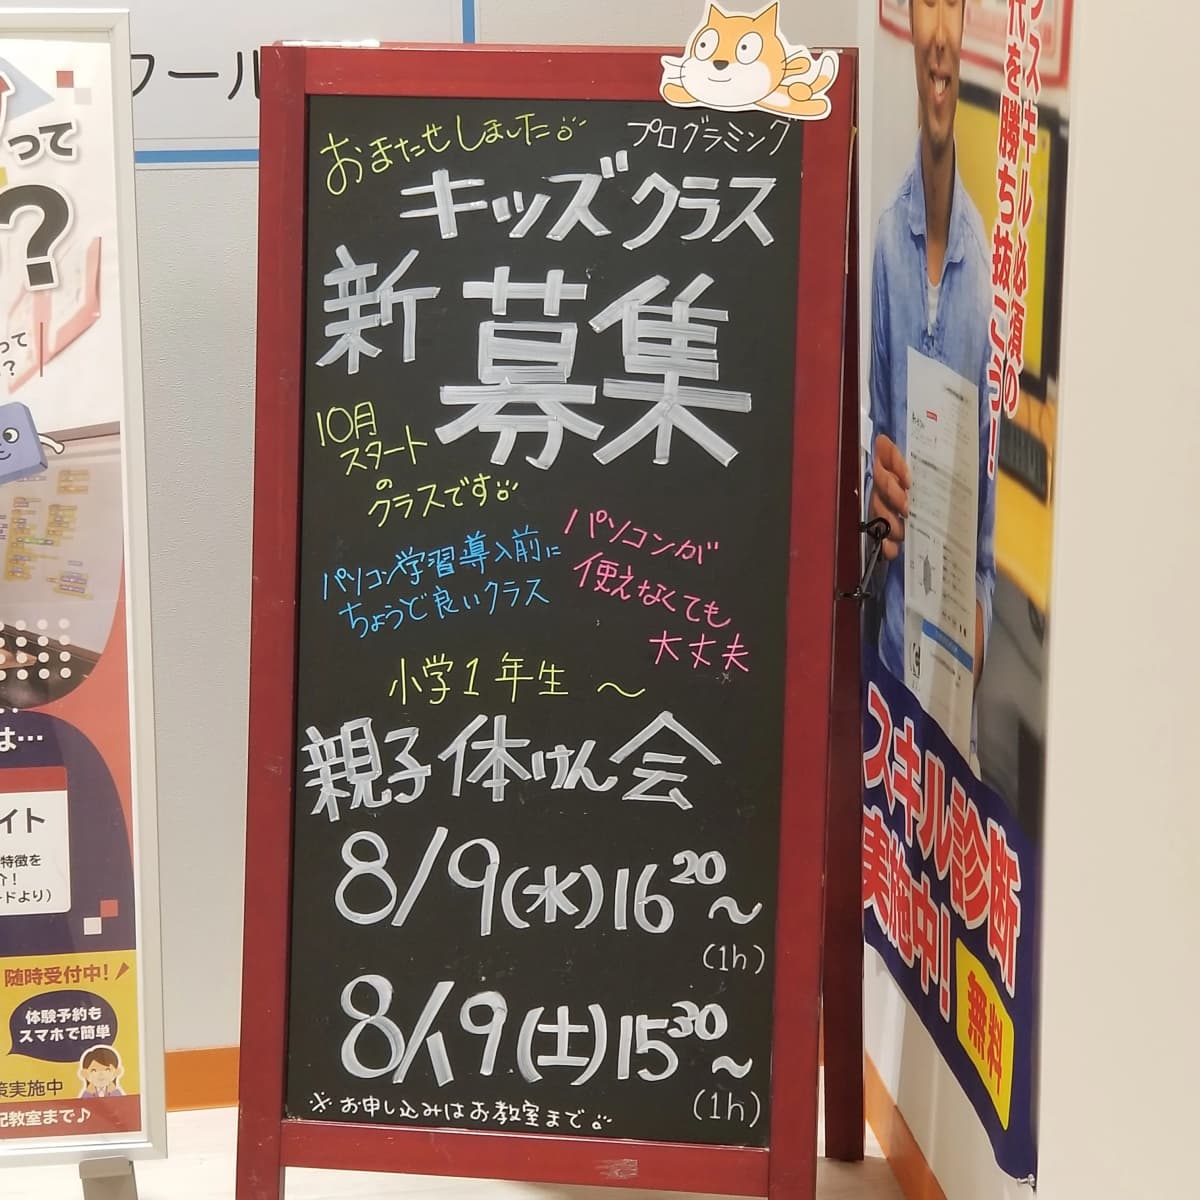 おまたせしました
プログラミング
キッズクラス
新募集
10月
スタート
の
クラスです
パソコン学習導入前に
ちょうど良いクラス
パソコンが
使えなくても
大丈夫
小学1年生 〜
親子体けん会
8/9(水)16²⁰〜
(1h)
8/19(土)15³⁰〜
(1h)
※お申し込みはお教室まで。
クール
って
?
って
?
は…
イト
特徴を
介!
ードより)
随時受付中!
体験予約も
スマホで簡単
策実施中
記教室まで♪
スキル必須の
代を勝ち抜こう!
スキル診断
実施中!
無料